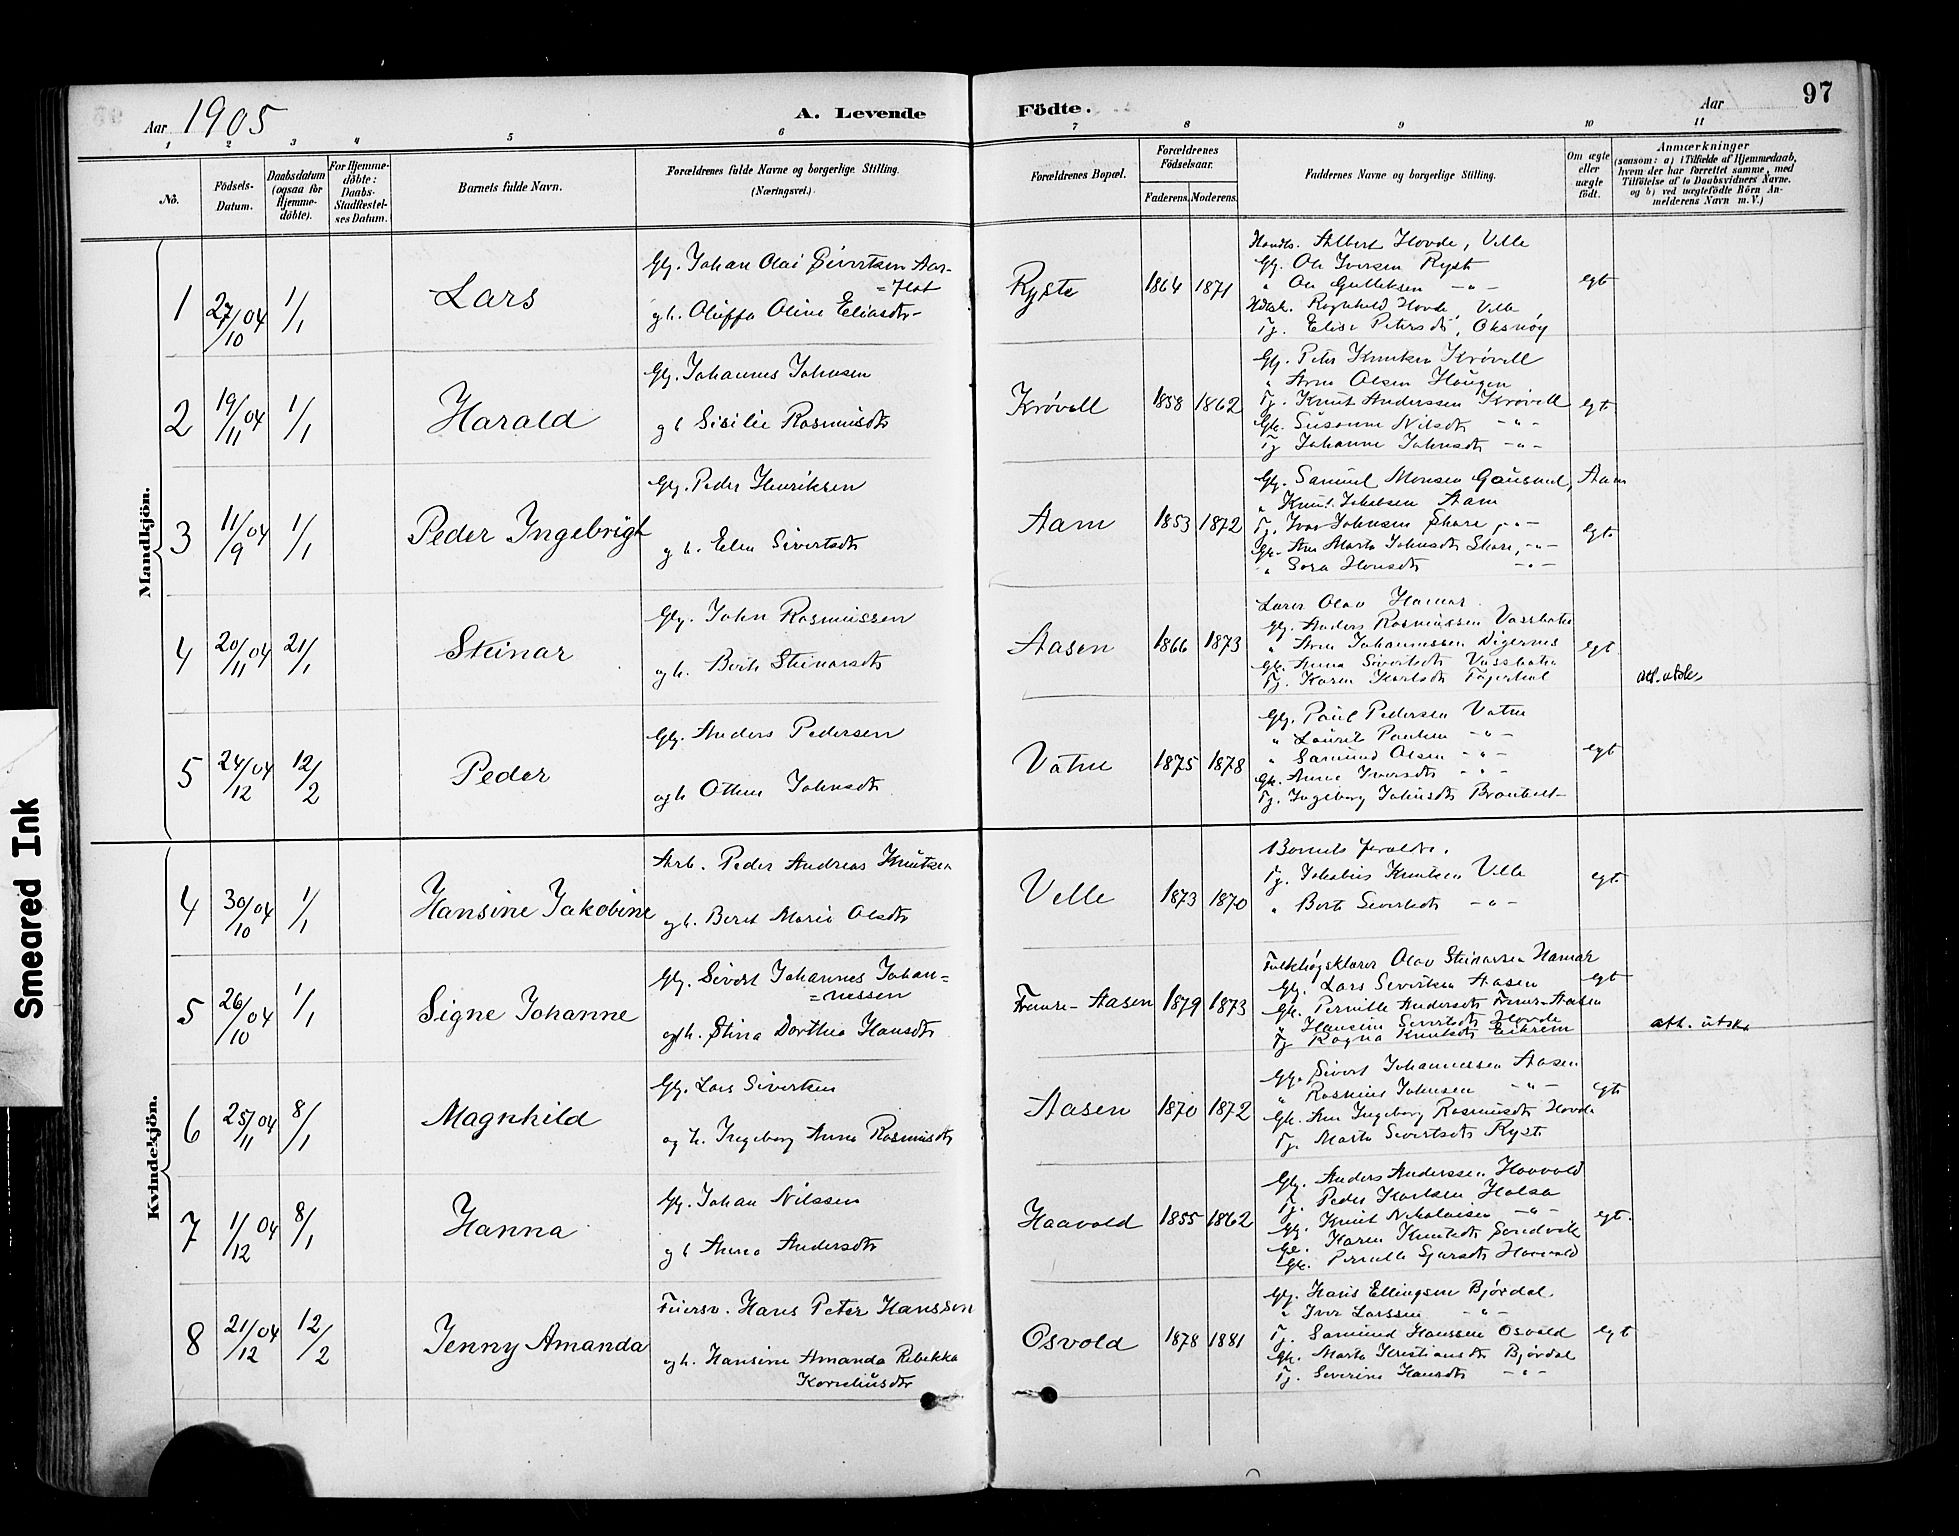 Aar 1905
A. Levende Födte.
Aar
97
1 2 3 4 5 6 7 8 9 10 11
No.
Födsels-Datum.
Daabsdatum (ogsaa for Hjemmedöbte).
For Hjemmedöbte: Daabs-Stadfæstelses Datum.
Barnets fulde Navn.
Forældrenes fulde Navne og borgerlige Stilling. (Næringsvei.)
Forældrenes Bopæl.
Forældrenes Födselsaar.
Faderens. Moderens.
Faddernes Navne og borgerlige Stilling.
Om ægte eller uægte födt.
Anmærkninger
(saasom: a) i Tilfælde af Hjemmedaab, hvem der har forrettet samme, med Tilföielse af to Daabsvidners Navne. og b) ved uægtefödte Börn Anmelderens Navn m. V.)
Mandkjön.
1 27/10 04 1/1 Lars
Gbr. Johan Olai Sivertsen Aar-
=flot
og h. Oluffa Oline Eliasdtr
Ryste 1864 1871
Handls. Albert Hovde, Velle
Gbr. Ole Iversen Ryste
" Ole Gulleksen -"-
Ragnhild Hovde, Velle,
Tj. Elise Petersdtr, Oksnöy
egt
2 19/11 04 1/1 Harald
Gbr. Johannes Johnsen
og h Sisilie Rasmusdtr
Krövell 1858 1862
Gbr. Peter Knutsen Krövell
" Arne Olsen Haugen
Tj. Knut Anderssen Krövell
Gbr. Susanne Nilsdtr -"-
Tj Johanne Johnsdtr -"-
egt.
3 11/9 04 1/1 Peder Ingebrigt
Gbr. Peder Henriksen
og h. Elen Sivertsdtr
Aam 1853 1872
Gbr. Samuel Monsen Gausnes, Aam
" Knut Jakobsen Aam
Tj. Ivar Johnsen Skare, -"-
Gbr. Ane Marta Johnsdtr Skare, -"-
" Sara Hansdtr -"-
egt.
4 20/11 04 21/1 Steinar
Gbr. John Rasmussen
og h. Berte Steinarsdtr
Aasen 1866 1873
Lærer Olav Hamar.
Gbr. Anders Rasmussen
" Arne Johannessen Digernes
Gbr. Anna Sivertsdtr
Tj. Karen Karlsdtr
egt
att. utsk.
5 24/12 04 12/2 Peder
Gbr. Anders Pedersen
og h Oline Johnsdtr
Vatne 1875 1878
Gbr. Paul Pedersen Vatne
" Laurits Paulsen -"-
" Samund Olsen -"-
Gbr. Anne Iversdtr -"-
Tj. Ingeborg Johnsdtr
egt
Kvindekjön.
4 30/10 04 1/1 Hansine Jakobine
Arb. Peder Andreas Knutsen
og h. Beret Marie Olsdtr
Velle 1873 1870
Barnets foreldre.
Tj. Johannes Knutsen Velle
" Berte Sivertsdtr -"-
egt.
5 26/10 04 1/1 Signe Johanne
Gbr. Sivert Johannes Johan=
=nessen
og h. Stina Dorthea Hansdtr
Fremre-Aasen 1879 1873
Folkhøgsklærer Olav Steinarsen Hamar
Gbr. Lars Sivertsen Aasen
Gbr. Pernille Andersdtr Fremr-Aasen
" Hansine Sivertsdtr Hovde
Tj Ragna Knutsdtr Eikrem
egt
att. utsk.
6 25/11 04 8/1 Magnhild
Gbr. Lars Sivertsen
og h. Ingeborg Anna Rasmusdtr
Aasen 1870 1872
Gbr. Sivert Johannessen Aasen
" Rasmus Johnsen -"-
Gbr. Ane Ingeborg Rasmusdtr Hovde
Tj. Marte Sivertsdtr Ryste
egt.
7 1/12 04 8/1 Hanna
Gbr. Johan Nilssen
og h Anna Andersdtr
Haavold 1855 1862
Gbr. Anders Anderssen Haavold
Tj. Peder Karlsen Holsa
Gbr. Knut Nikolaisen -"-
Gbr. Karen Knutsdtr Sandvik
Gbr. Pernille Haavold
egt.
8 21/12 04 12/2 Jenny Amanda
Hans Peter Hanssen
og h. Hansine Amanda Rebekka
Korneliusdtr
Osvold 1878 1881
Gbr. Hans Ellingsen Bjørdal.
" Iver Larssen -"-
Tj. Samund Hanssen Osvold
Gbr. Marte Kristiansdtr Bjørdal
Tj. Severine Hansdtr -"-
egt
Smeared Ink